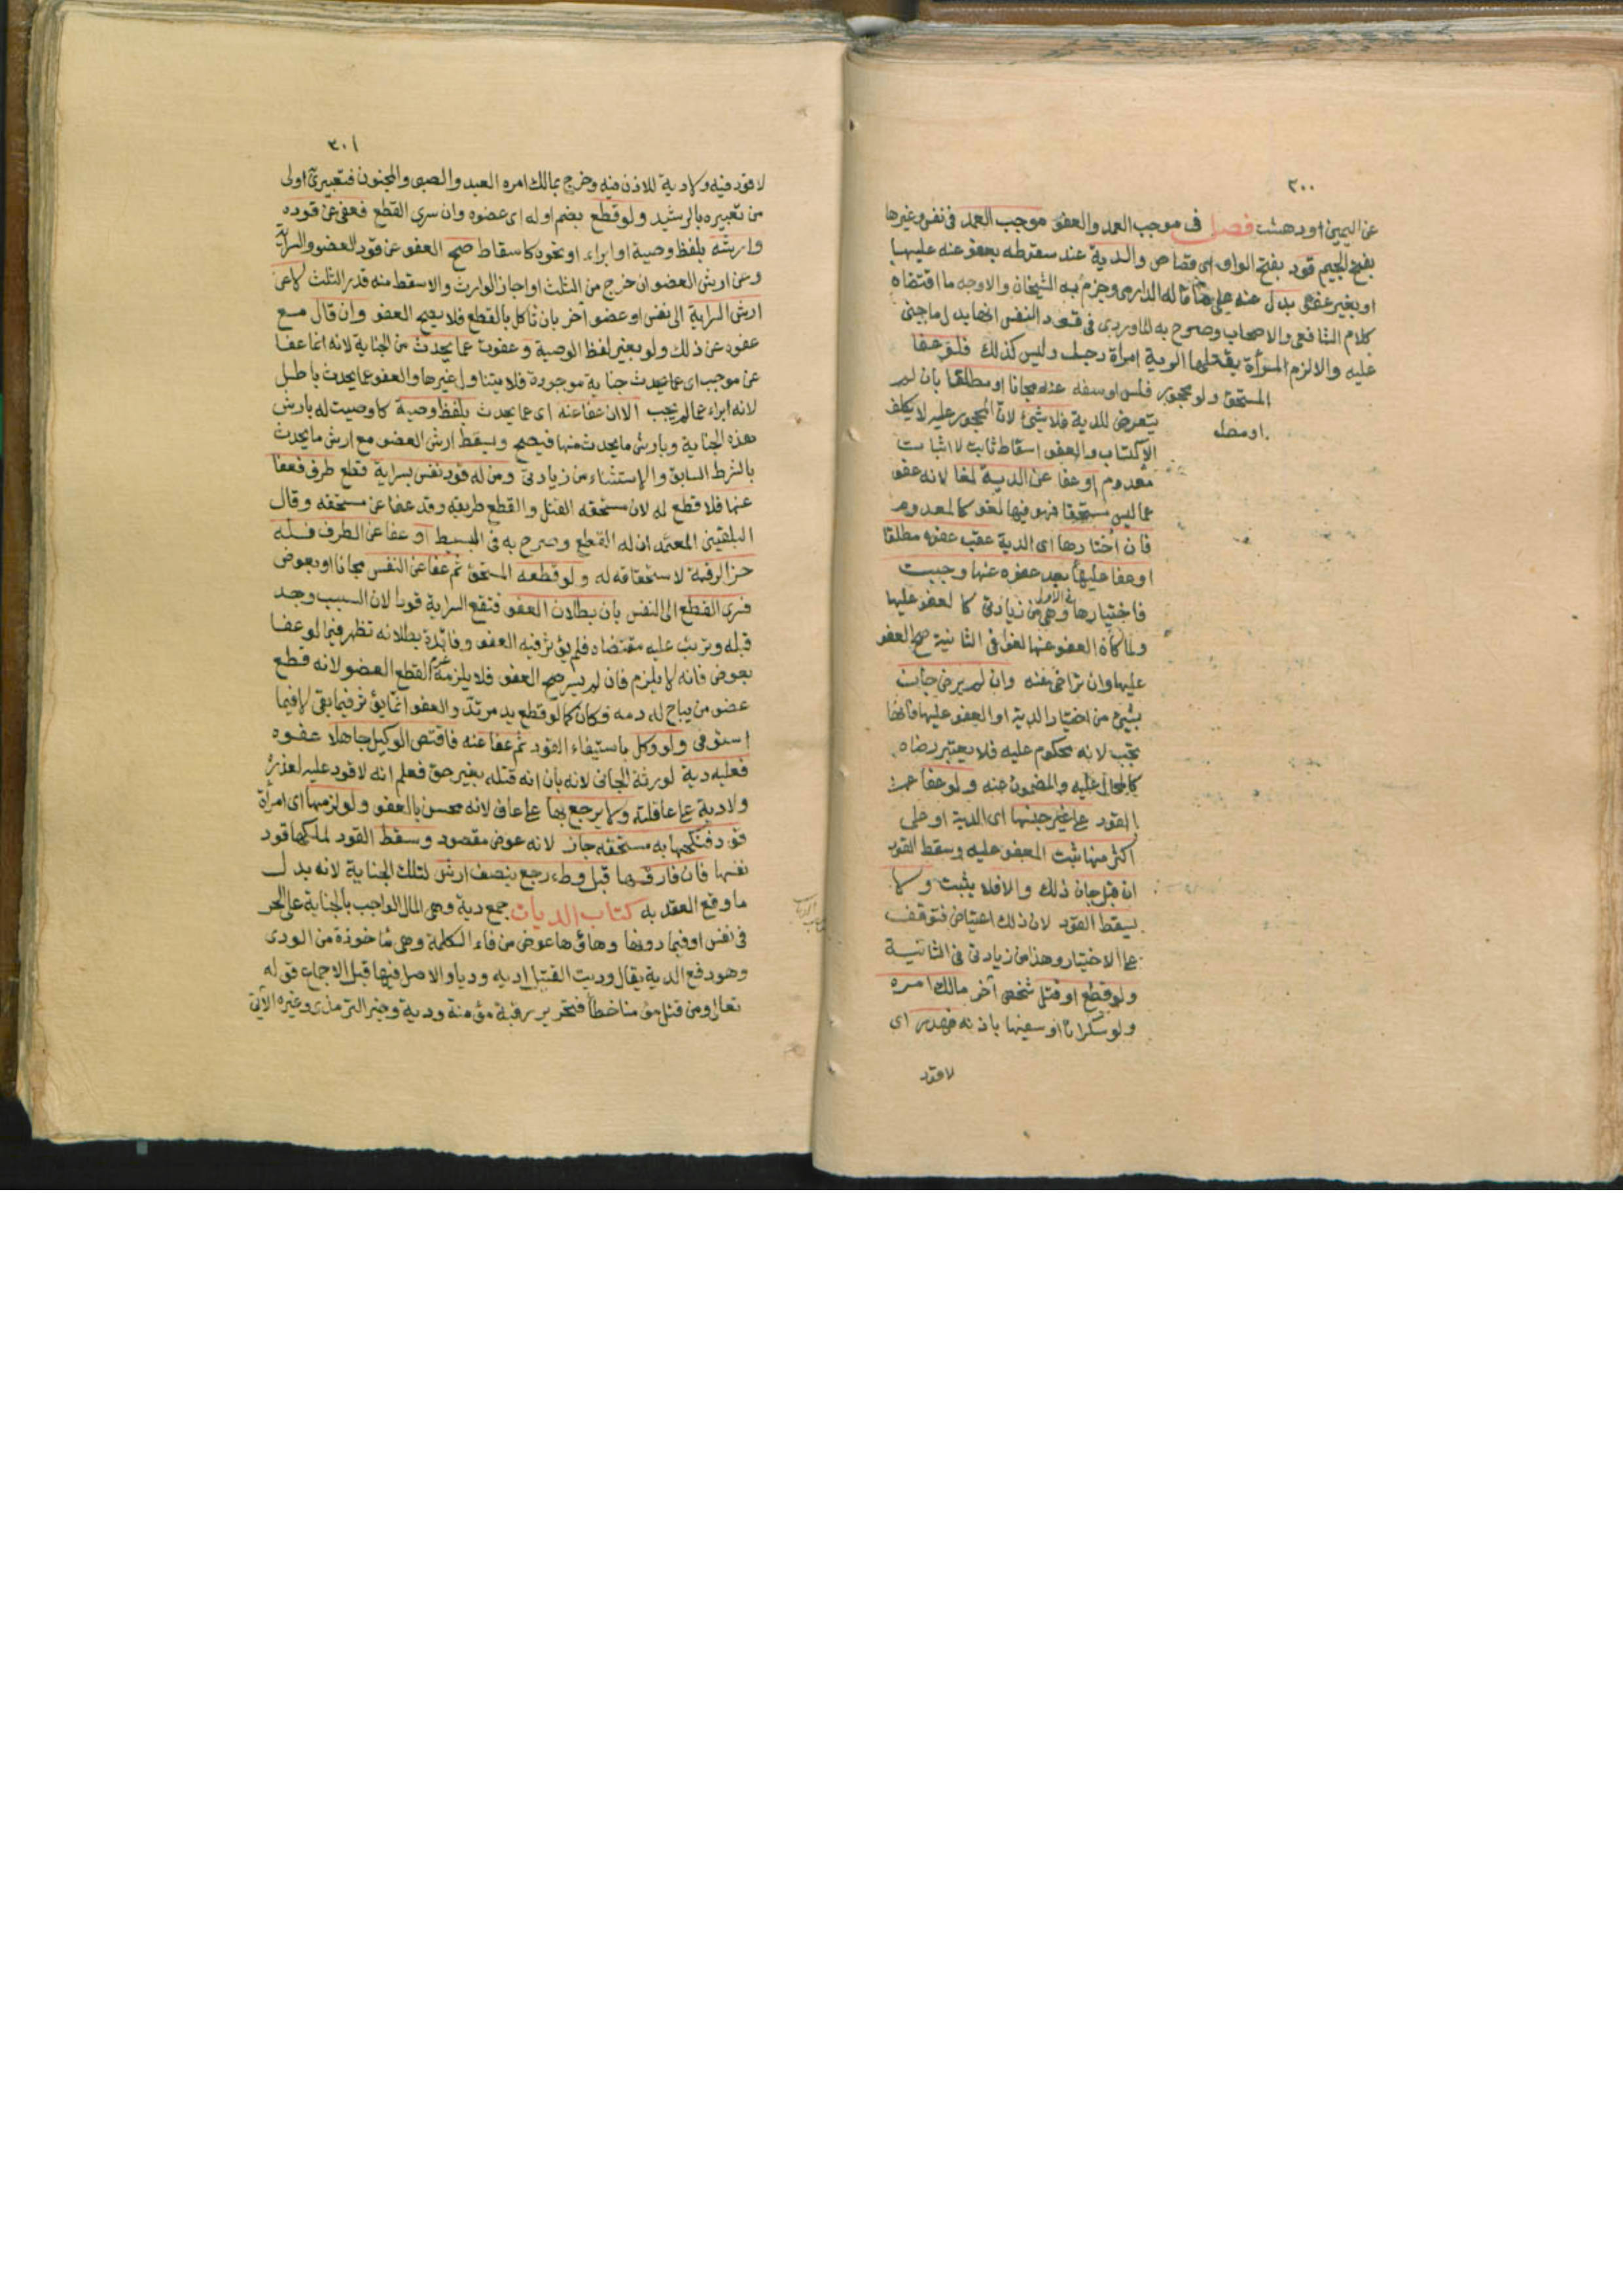 ٣٠٠
عن اليمين او دهشت فصل فى موجب العمد والعفو موجب العمد فى نفس وغيرها
بفتح الجيم قود بفتح الواو اى قصاص والدية عند سقوطه بعفو عنه عليها
او بغير عفو بدل عنه على ما قاله الدارمى وجزم به الشيخان والاوجه ما اقتضاه
كلام الشافعى والاصحاب وصرح به الماوردى فى قود النفس انها بدل ما جنى
عليه والا لزم المرأة بقتلها الرجل دية امرأة وليس كذلك فلو عفا
المستحق ولو محجور فلس او سفه عنه مجانا او مطلقا بان لم
يتعرض للدية فلا شئ لان المحجور عليه لا يكلف
او مطلـ
الاكتساب والعفو اسقاط ثابت لا اثبات
معدوم او عفا عن الدية لغا لانه عفو
عما ليس مستحقا فهو فيها لغو كالمعدوم
فان اختارها اى الدية عقب عفوه مطلقا
او عفا عليها بعد عفوه عنها وجبت
فاختيارها فى الاولى وهى من زيادتى كالعفو عليها
ولما كان العفو عنها لغوا فى الثانية صح العفو
عليها وان تراخى عنه وان لم يرض جان
بشئ من اختيار الدية او العفو عليها فانها
تجب لانه محكوم عليه فلا يعتبر رضاه
كالمحال عليه والمضمون عنه ولو عفا عن
القود على غير جنسها اى الدية او على
اكثر منها ثبت المعفو عليه وسقط القود
ان قبل جان ذلك والا فلا يثبت ولا
يسقط القود لان ذلك اعتياض فتوقف
على الاختيار وهذا من زيادتى فى الثانية
ولو قطع او قتل شخص آخر مالك امره
ولو سكرانا او سفيها باذنه فهدر اى
لا قود
٣٠١
لا قود فيه ولا دية للاذن فيه وخرج بمالك امره العبد والصبى والمجنون فتعبيرى اولى
من تعبيره بالرشيد ولو قطع بضم اوله اى عضوه وان سرى القطع فعفى عن قوده
وارشه بلفظ وصية او ابراء او نحوه كاسقاط صح العفو عن قود العضو والسراية
وعن ارش العضو ان خرج من الثلث او اجاز الوارث والا سقط منه قدر الثلث لا عن
ارش السراية الى نفس او عضو آخر بان تآكل بالقطع فلا يصح العفو وان قال مع
عفوه عن ذلك ولو بغير لفظ الوصية وعفوت عما يحدث من الجناية لانه انما عفا
عن موجب اى عما يحدث جناية موجودة فلا يتناول غيرها والعفو عما يحدث باطل
لانه ابراء عما لم يجب الا ان عفا عنه اى عما يحدث بلفظ وصية كاوصيت له بارش
هذه الجناية وبارش ما يحدث منها فيصح ويسقط ارش العضو مع ارش ما يحدث
بالشرط السابق والاستثناء من زيادتى ومن له قود نفس بسراية قطع طرف فعفا
عنها فلا قطع له لان مستحقه القتل والقطع طريقه وقد عفا عن مستحقه وقال
البلقينى المعتمد ان له القطع وصرح به فى البسيط او عفا عن الطرف فله
حز الرقبة لاستحقاقه له ولو قطعه المستحق ثم عفا عن النفس مجانا او بعوض
فسرى القطع الى النفس بان بطلان العفو فتقع السراية قودا لان السبب وجد
قبله وترتب عليه مقتضاه فلم يؤثر فيه العفو وفائدة بطلانه تظهر فيما لو عفا
بعوض فانه لا يلزم فان لم يسر صح العفو فلا يلزمه غرم القطع العضو لانه قطع
عضو من يباح له دمه فكان كما لو قطع يد مرتد والعفو انما يؤثر فيما بقى لا فيما
استوفى ولو وكل باستيفاء القود ثم عفا عنه فاقتص الوكيل جاهلا عفوه
فعليه دية لورثة الجانى لانه بان انه قتله بغير حق فعلم انه لا قود عليه لعذره
ولا دية على عاقلته ولا يرجع بها على عاف لانه محسن بالعفو ولو لزمها اى امرأة
قود فنكحها به مستحقه جاز لانه عوض مقصود وسقط القود لملكها قود
نفسها فان فارقها قبل وطء رجع بنصف ارش لتلك الجناية لانه بدل
ما وقع العقد به كتاب الديات جمع دية وهى المال الواجب بالجناية على الحر
فى نفس او فيما دونها وهاؤها عوض من فاء الكلمة وهى ماخوذة من الودى
وهو دفع الدية يقال وديت القتيل اديه وديا والاصل فيها قبل الاجماع قوله
تعالى ومن قتل مؤمنا خطأ فتحرير رقبة مؤمنة ودية وخبر الترمذى وغيره الآتى